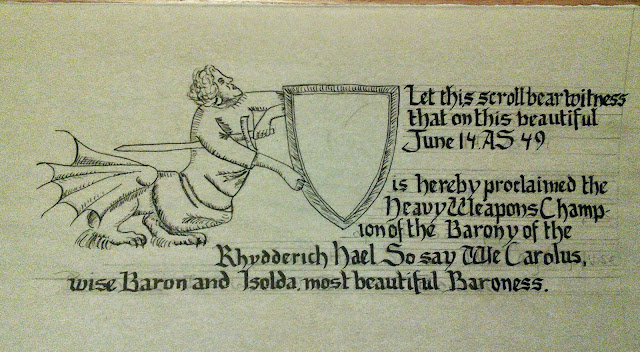 Let this scroll bear witness
that on this beautiful
June 14 AS 49
is hereby proclaimed the
Heavy Weapons Champ-
ion of the Barony of the
Rhydderich Hael So say We Carolus,
wise Baron and Isolda, most beautiful Baroness.